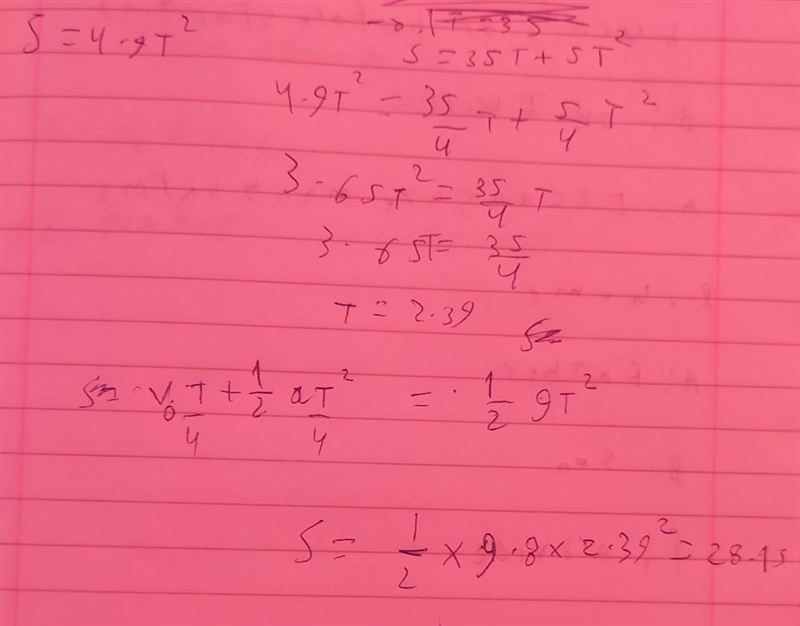 S = 4.9T²
S = 35T + 5T²
4.9T² = 35/4 T + 5/4 T²
3.65T² = 35/4 T
3.65T = 35/4
T = 2.39
S = V₀ T/4 + 1/2 aT²/4 = 1/2 gT²
S = 1/2 × 9.8 × 2.39² = 28.